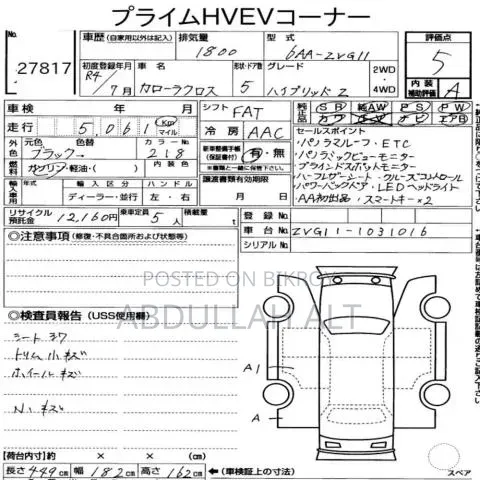 プライムHVEVコーナー
No. 27817
車歴 (自家用以外は記入)
排気量 1800
型式 6AA-ZVG11
評価点 5
初度登録年月 R4年7月
車名 カローラクロス
形状・ドア数 5
グレード ハイブリッド Z
2WD・4WD
内装補助評価 A
車検 年 月
シフト FAT
走行 5,061 Km マイル
冷房 AAC
純正品 SR 純AW PS PW カワ ナビ エアB
外色 元色 ブラック → 色替
カラーNo. 218
内装色
燃料 ガソリン・軽油・( )
新車整備手帳(保証書付) 有・無
輸入車用 年式 輸入区分 ディーラー・並行 ハンドル 左・右
譲渡書類有効期限 月 日
セールスポイント
・パノラマルーフ・ETC
・パノラミックビューモニター
・ブラインドスポットモニター
・ハーフレザーシート・クルーズコントロール
・パワーバックドア・LEDヘッドライト
・AA初出品・スマートキー×2
リサイクル預託金 12,160円
乗車定員 5人
積載量 t
登録No.
車台No. ZVG11-1031016
シリアルNo.
◎注意事項 (修復・不具合箇所および状態等)
POSTED ON BIKROY
ABDULLAH ALT
◎検査員報告 (USS使用欄)
シート
トリム小キズ
ホイールキズ
キズ
A1
A
【荷台内寸】約 × × (cm)
長さ 449cm 幅 182cm 高さ 162cm
←(車検証上の寸法)
スペア